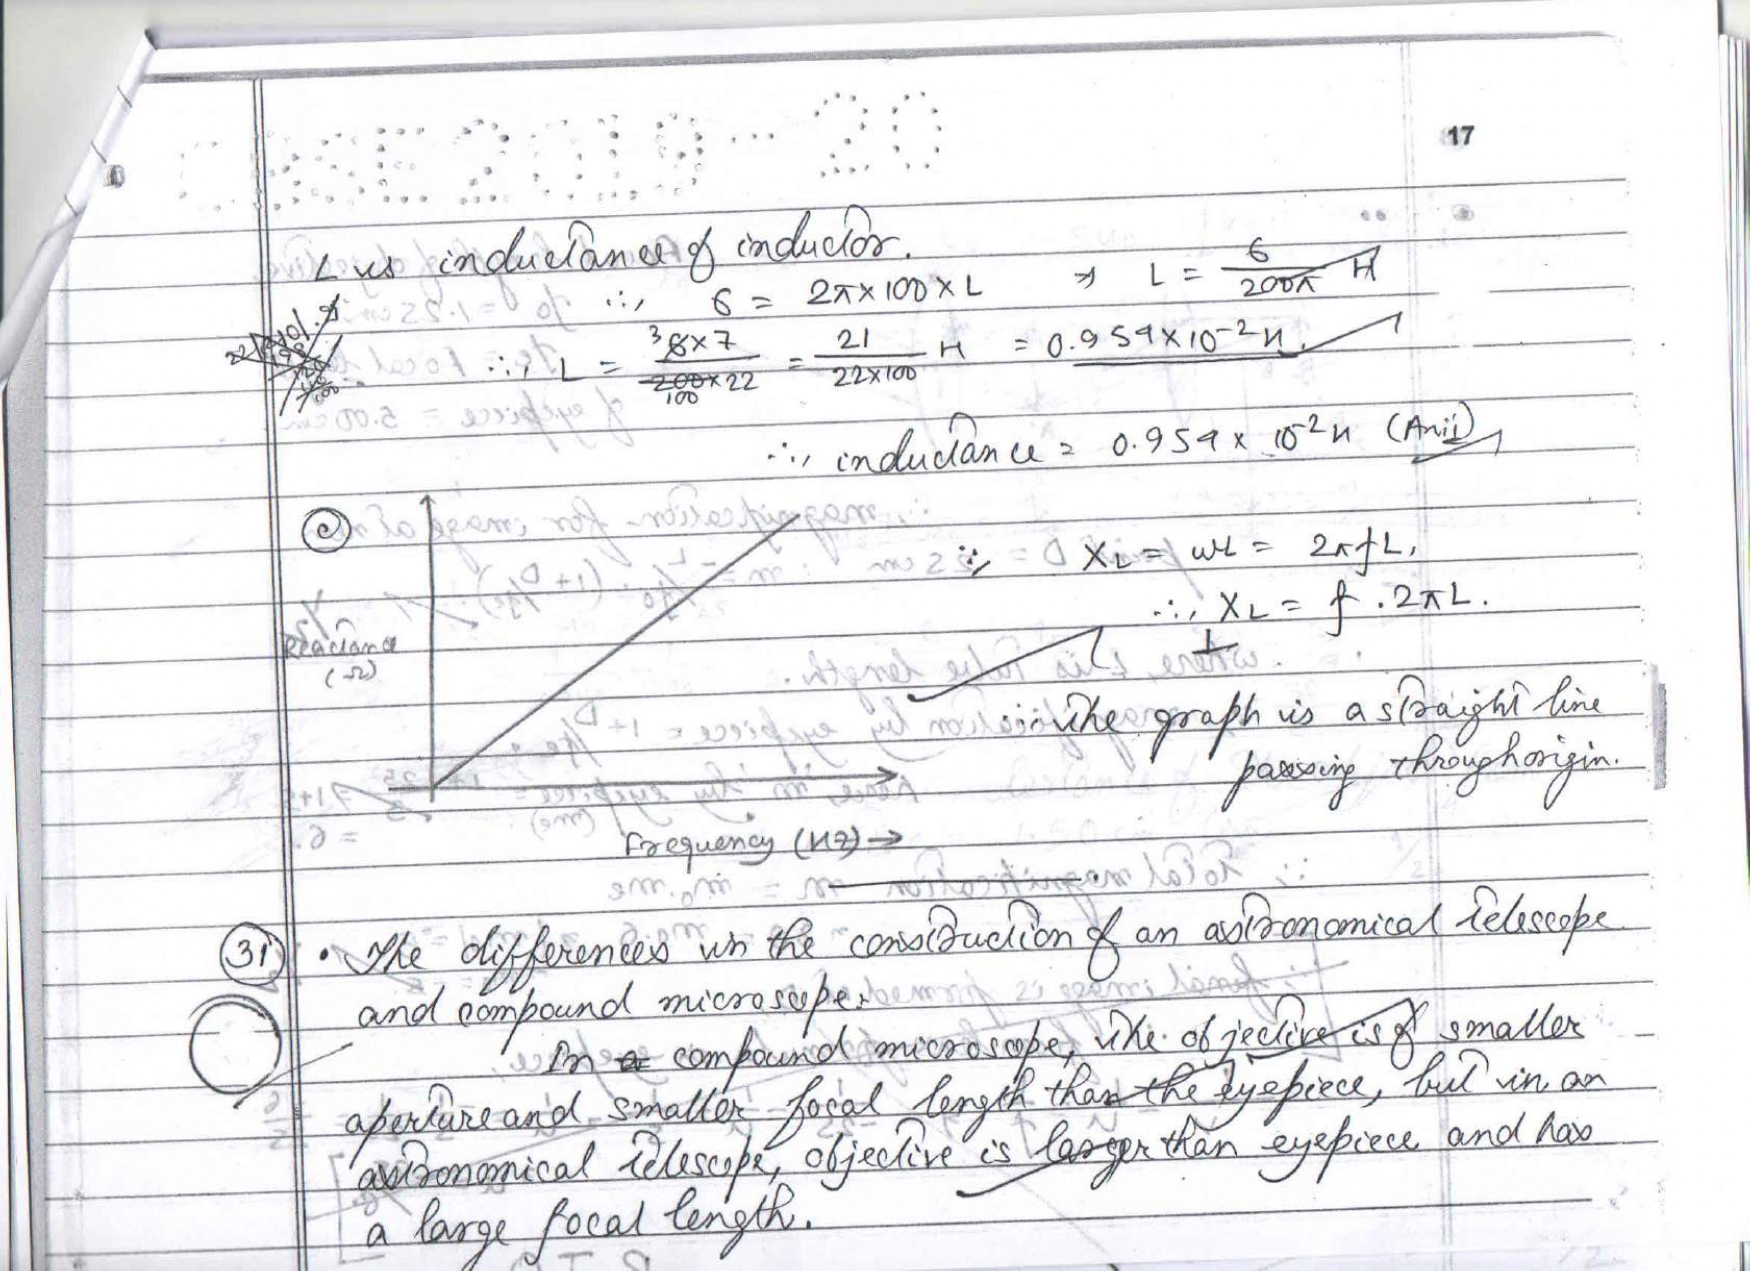 CBSE2019-20
17
L is inductance of inductor.
∴, 6 = 2π×100×L ⇒ L = 6/200π H
∴, L = ³6×7/200×22 100 = 21/22×100 H = 0.954×10⁻² H.
∴, inductance = 0.954 × 10⁻² H (Ans)
(c)
∵, XL = ωL = 2πfL,
∴, XL = f . 2πL.
Reactance
(Ω)
∴ the graph is a straight line
passing through origin.
Frequency (HZ) →
(31) • The differences in the construction of an astronomical telescope
and compound microscope:
In a compound microscope, the objective is of smaller
aperture and smaller focal length than the eyepiece, but in an
astronomical telescope, objective is larger than eyepiece and has
a large focal length.